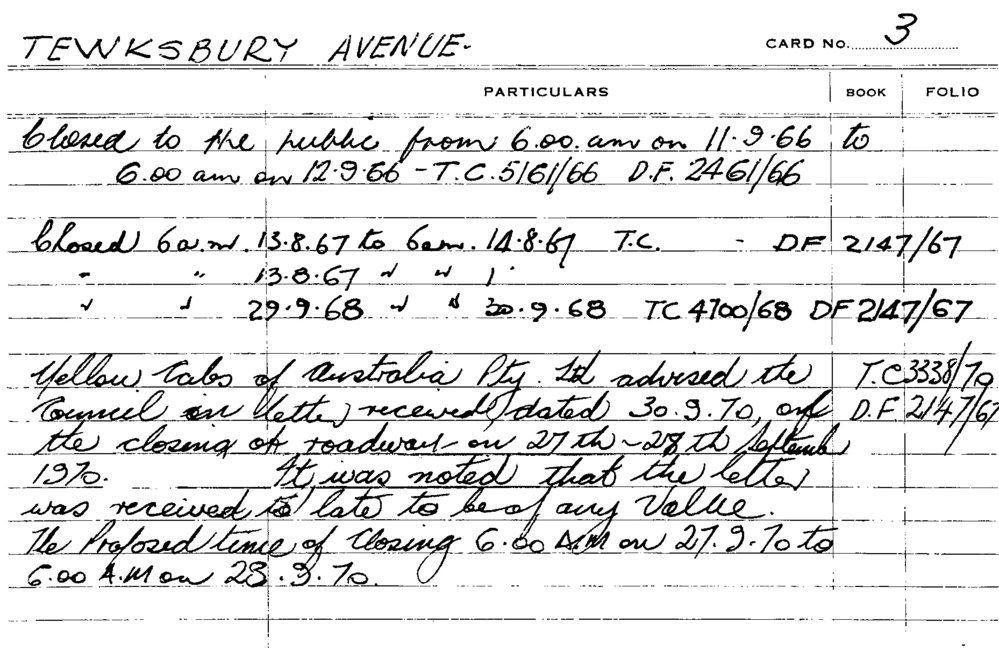 TEWKSBURY AVENUE. CARD NO. 3
PARTICULARS BOOK FOLIO
Closed to the public from 6.00 am on 11.9.66 to
6.00 am on 12.9.66 - T.C. 5161/66 D.F. 2461/66
Closed 6 a.m. 13.8.67 to 6am. 14.8.67 T.C. - DF 2147/67
" " 13.8.67 " " 1
" " 29.9.68 " " 30.9.68 TC 4700/68 DF 2147/67
Yellow Cabs of Australia Pty. Ltd advised the T.C 3338/70
Council in letter received, dated 30.9.70, of D.F. 2147/67
the closing of roadway on 27th - 28th September
1970. It was noted that the letter
was received to late to be of any Vallue.
The Proposed time of Closing 6.00 A.M on 27.9.70 to
6.00 A.M on 28.9.70.